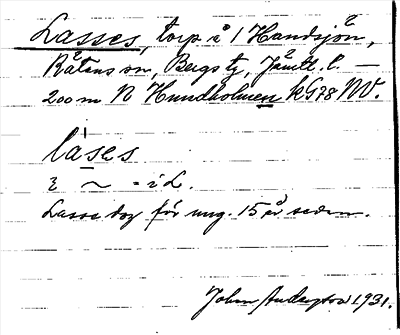 Lasses, torp i 1 Handsjön,
Rätans sn, Bergs tg, Jämtl. l. —
200 m N Hundholmen kG78NV.
lases
i ~ = i L.
Lasse dog för ung. 15 år sedan.
John Anderson 1931.